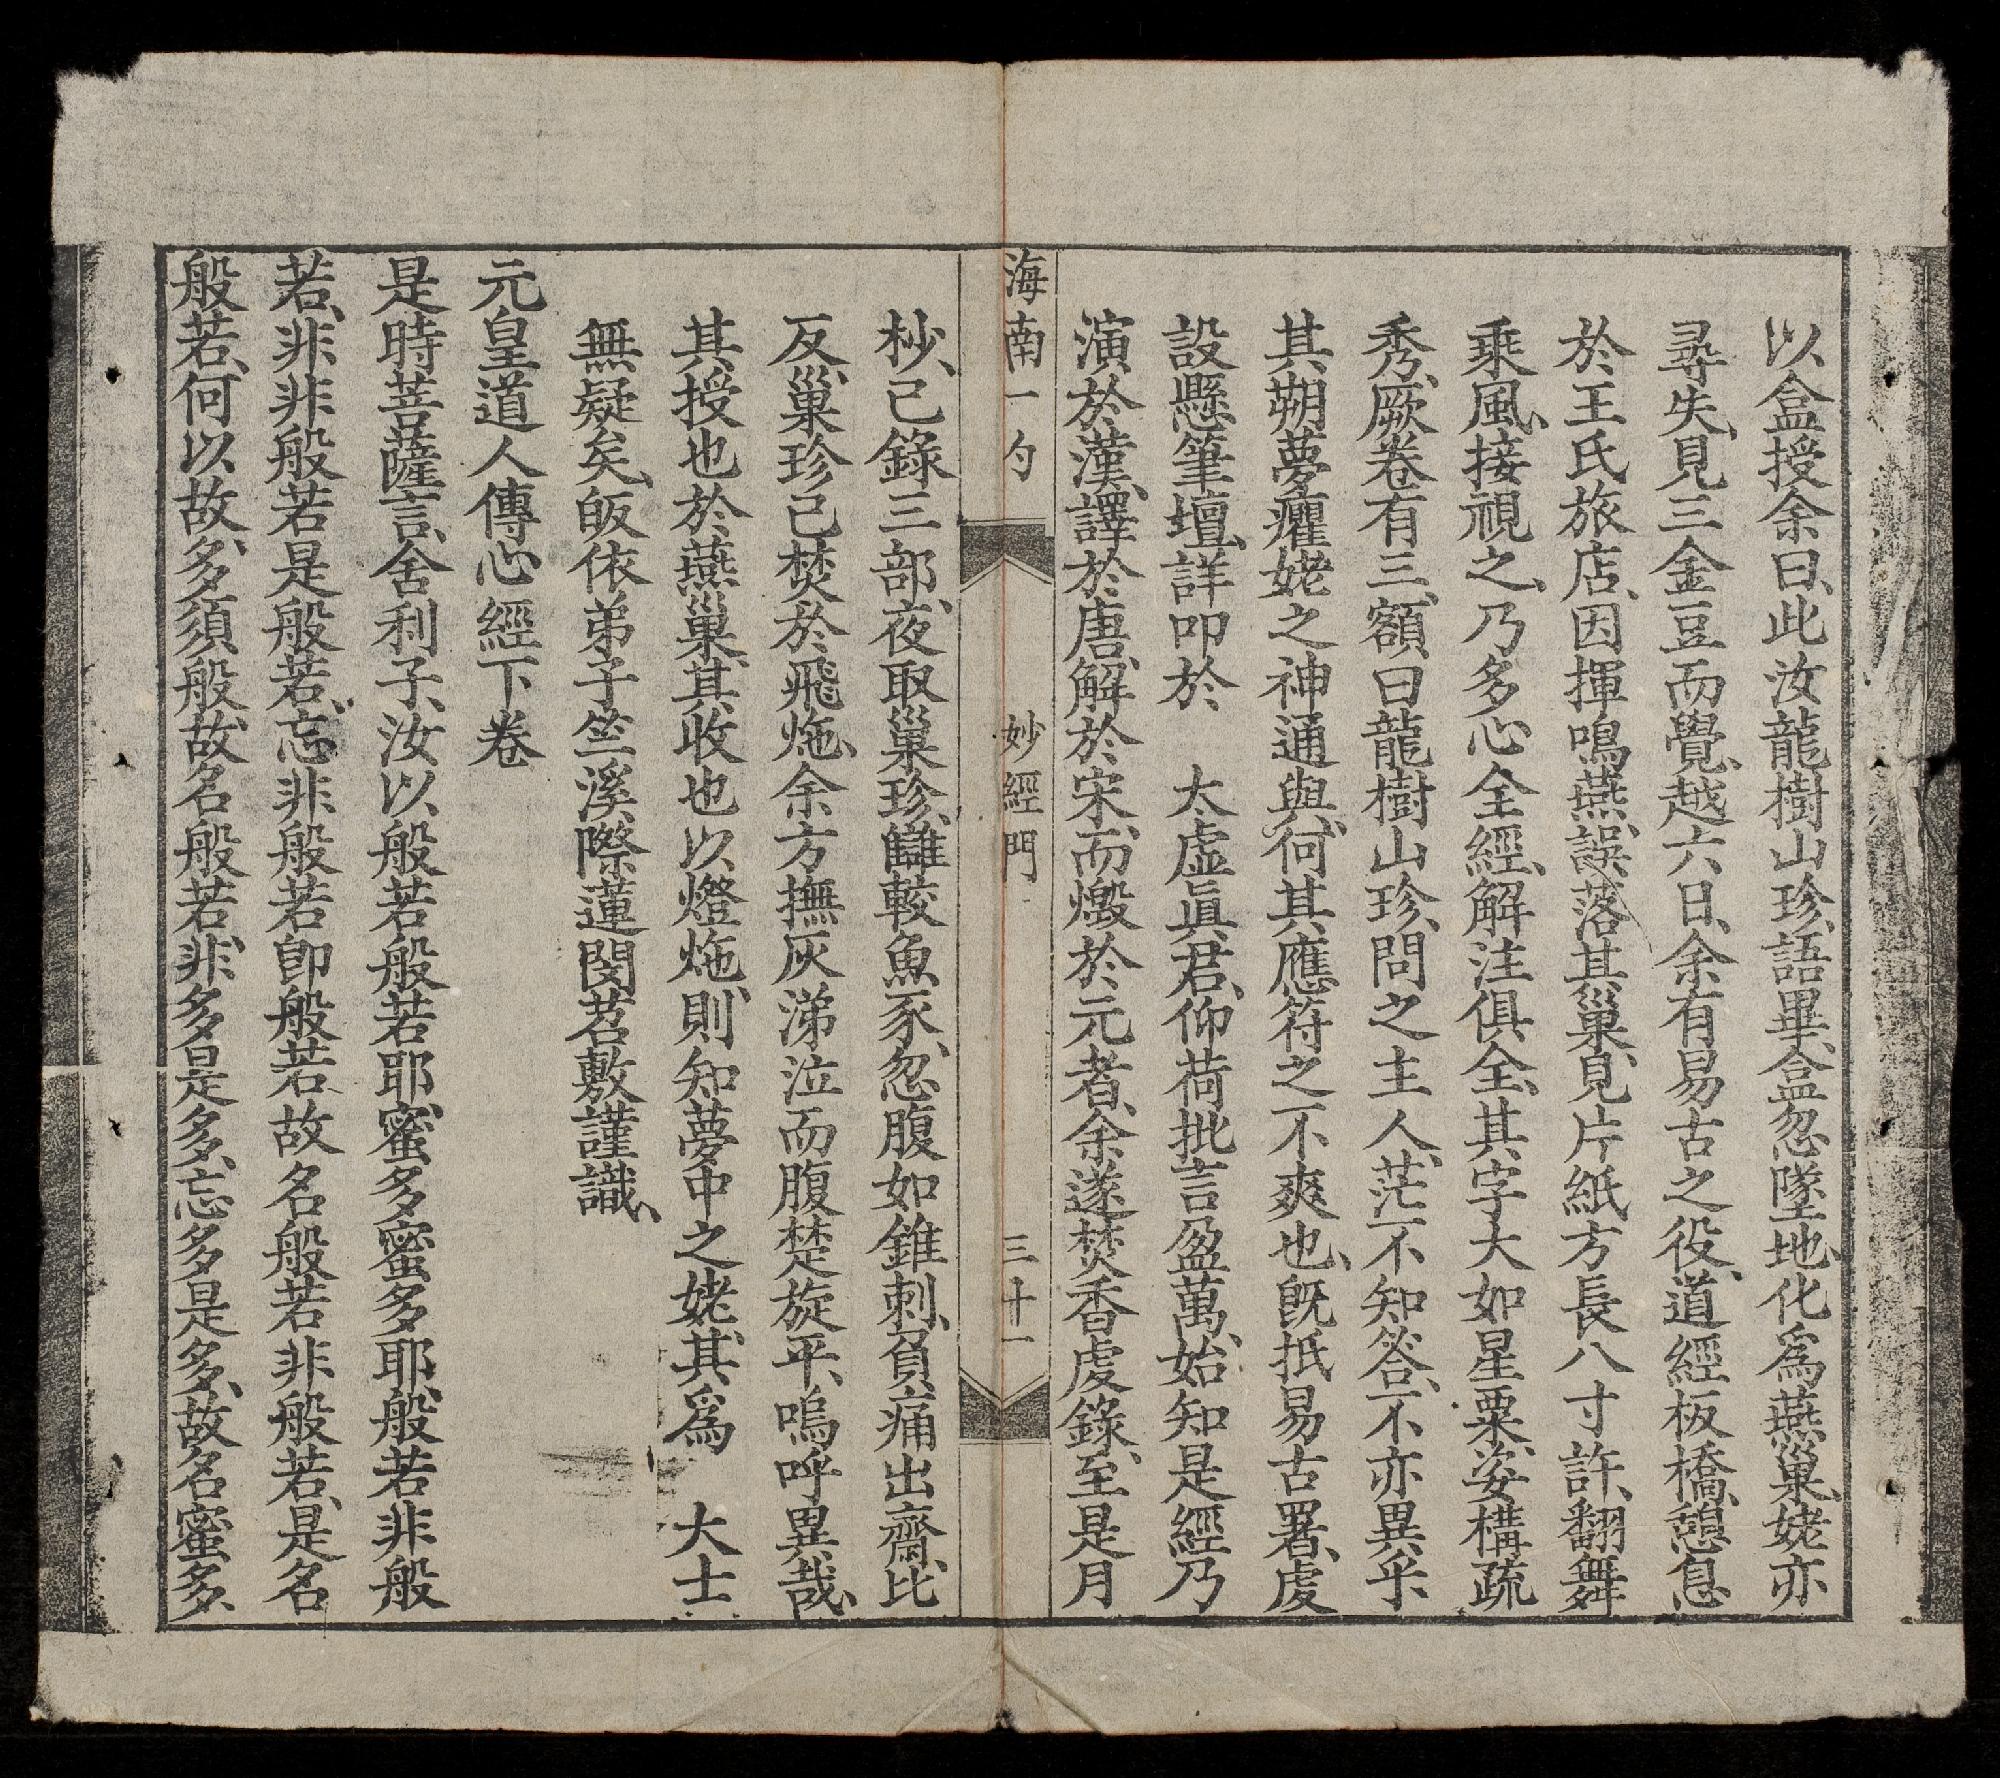 以盒授余曰、此汝龍樹山珍、語畢、盒忽墜地、化爲燕巢、姥亦
尋失、見三金豆而覺、越六日、余有易古之役、道經板橋、憩息
於王氏旅店、因揮鳴燕、誤落其巢、見片紙方長八寸許、翻舞
乘風、接視之、乃多心全經、解注俱全、其字大如星粟、姿構疏
秀、厥卷有三、額曰龍樹山珍、問之主人、茫不知答、不亦異乎、
其朔夢癯姥之神通與、何其應符之不爽也、旣抵易古署、虔
設懸筆壇、詳叩於　太虛眞君、仰荷批言盈萬、始知是經乃
演於漢、譯於唐、解於宋、而燬於元者、余遂焚香虔錄、至是月
海南一勺　妙經門　三十一
杪、己錄三部、夜取巢珍、讎較魚豕、忽腹如錐刺、負痛出齋、比
反、巢珍已焚於飛灺、余方撫灰涕泣、而腹楚旋平、嗚呼異哉、
其授也於燕巢、其收也以燈灺、則知夢中之姥、其爲　大士
無疑矣、皈依弟子竺溪際蓮閔苕敷謹識、
元皇道人傳心經下卷
是時菩薩言、舍利子、汝以般若般若耶、蜜多蜜多耶、般若非般
若、非非般若是般若、忘非般若卽般若、故名般若非般若、是名
般若、何以故、多須般、故名般若、非多是多、忘多是多、故名蜜多、